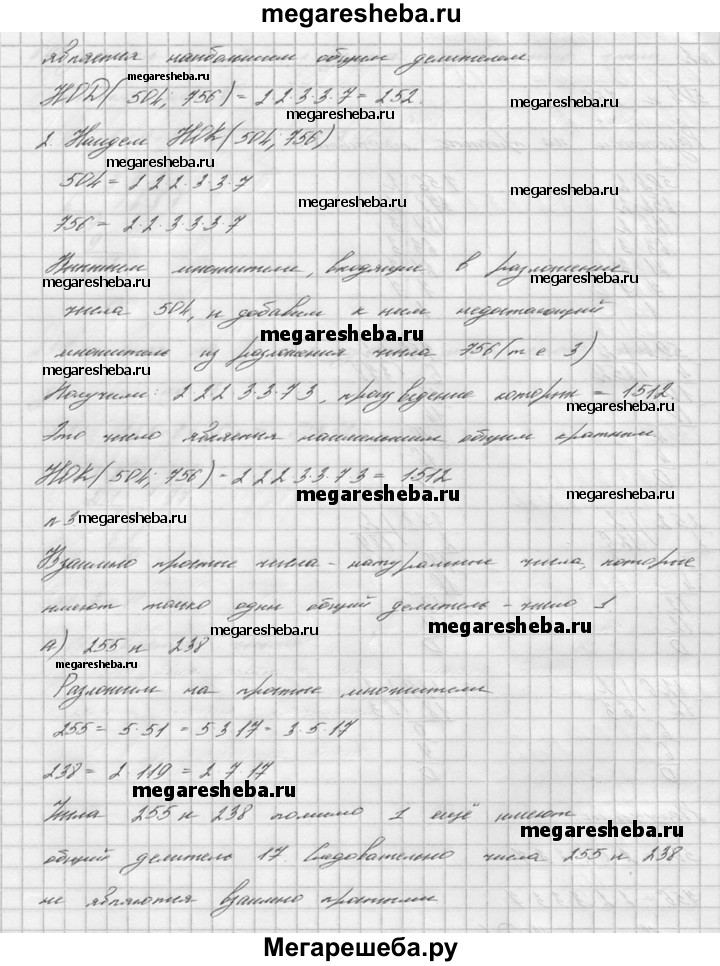 megaresheba.ru
является наибольшим общим делителем.
megaresheba.ru
НОД(504; 756) = 2 2·3·3·7 = 252.
megaresheba.ru
megaresheba.ru
2. Найдем НОК(504; 756)
megaresheba.ru
504 = 2 2 2·3·3·7
megaresheba.ru
megaresheba.ru
756 = 2·2·3·3·3·7
Выпишем множители, входящие в разложение
megaresheba.ru
megaresheba.ru
числа 504, и добавим к ним недостающий
megaresheba.ru
множитель из разложения числа 756 (т е 3)
megaresheba.ru
megaresheba.ru
Получим: 2 2 2 3·3·7 3, произведение которых = 1512.
megaresheba.ru
Это число является наименьшим общим кратным
НОК(504; 756) = 2 2 2 3·3·7 3 = 1512
megaresheba.ru
megaresheba.ru
n 3
megaresheba.ru
Взаимно простые числа - натуральные числа, которые
имеют только один общий делитель - число 1
megaresheba.ru
megaresheba.ru
а) 255 и 238
megaresheba.ru
Разложим на простые множители
255 = 5·51 = 5 3 17 = 3·5·17
238 = 2·119 = 2 7·17
megaresheba.ru
Числа 255 и 238 помимо 1 ещё имеют
megaresheba.ru
общий делитель 17. Следовательно числа 255 и 238
не являются взаимно простыми
Мегарешеба.ру